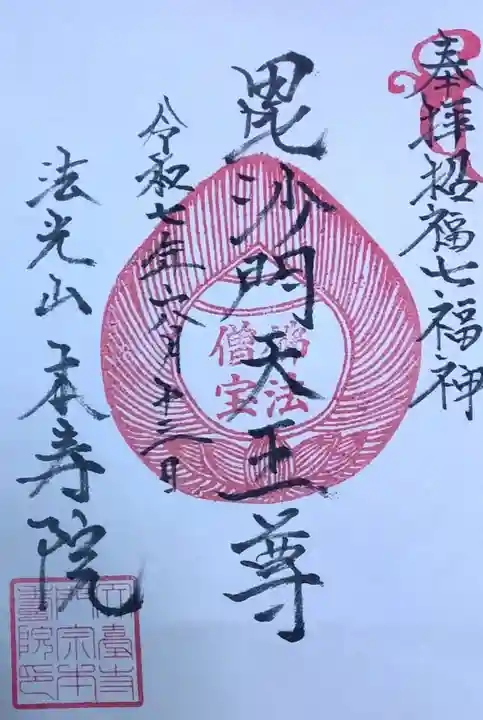 奉拝 招福七福神
毘沙門天王尊
令和七年六月十三日
法光山 本寿院
佛法
僧宝